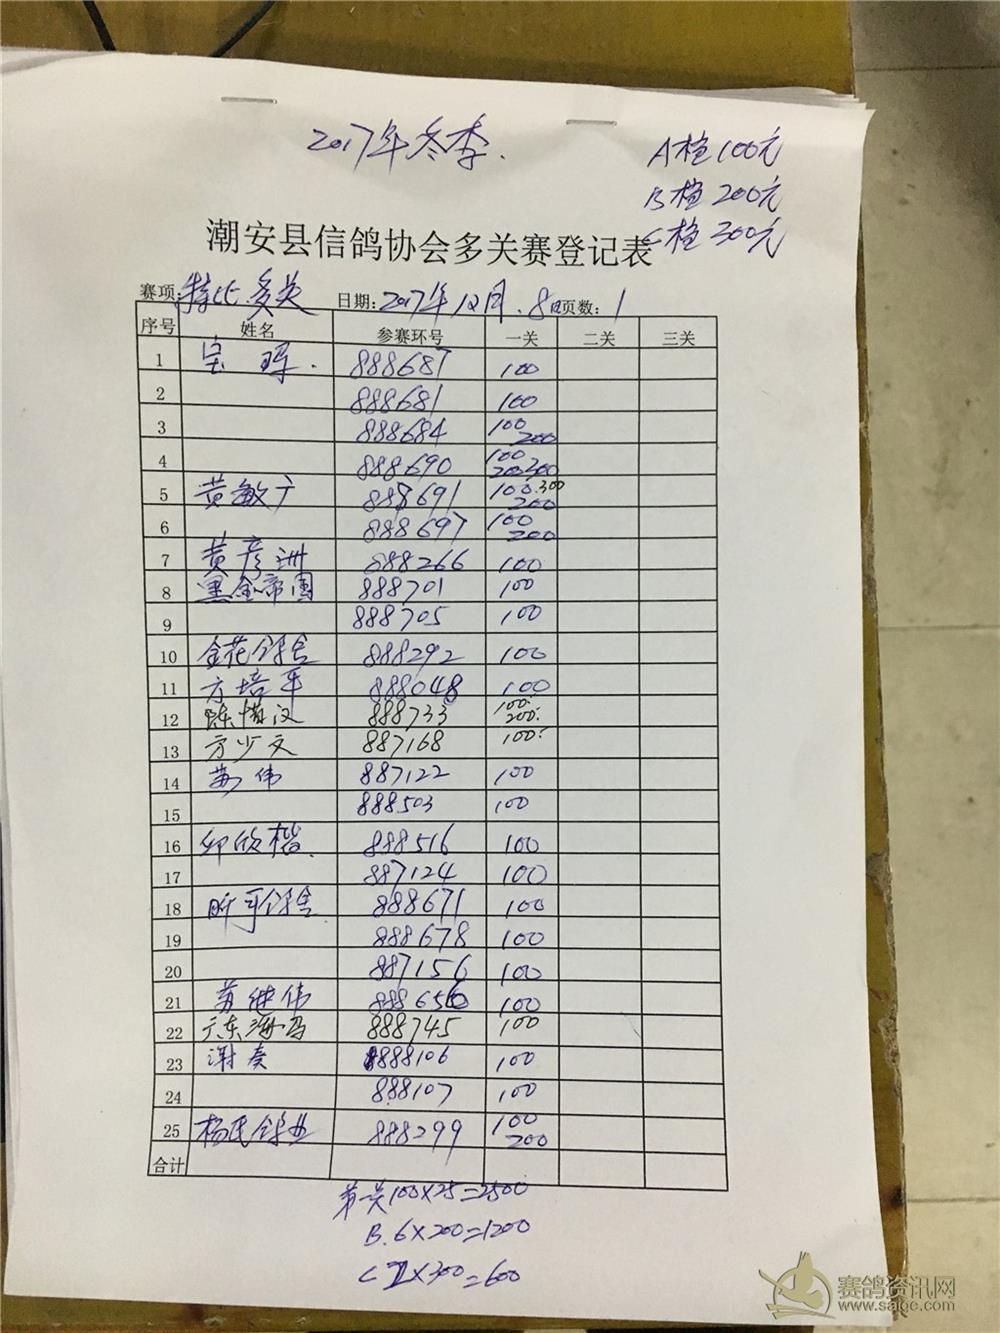 2017年冬季.
A档100元
B档 200元
C档 300元
潮安县信鸽协会多关赛登记表
赛项:特比多关 日期:2017年12月.8日 页数:1
序号 姓名 参赛环号 一关 二关 三关
1 888687 100
2 888681 100
3 888684 100 200
4 888690 100 200 300
5 黄敏广 888691 100.300 200
6 888697 100 200
7 黄彦洲 888266 100
8 黑金帝国 888701 100
9 888705 100
10 金花鸽舍 888292 100
11 方培平 888048 100
12 888733 100 200
13 方少文 887168 100
14 苏伟 887122 100
15 888503 100
16 888516 100
17 887124 100
18 鸽舍 888671 100
19 888678 100
20 887156 100
21 苏继伟 888656 100
22 广东海马 888745 100
23 谢奏 888106 100
24 888107 100
25 杨氏鸽业 888299 100 200
合计
第一关100X25=2500
B.6X200=1200
C 2X300=600
赛鸽资讯网
www.saige.com